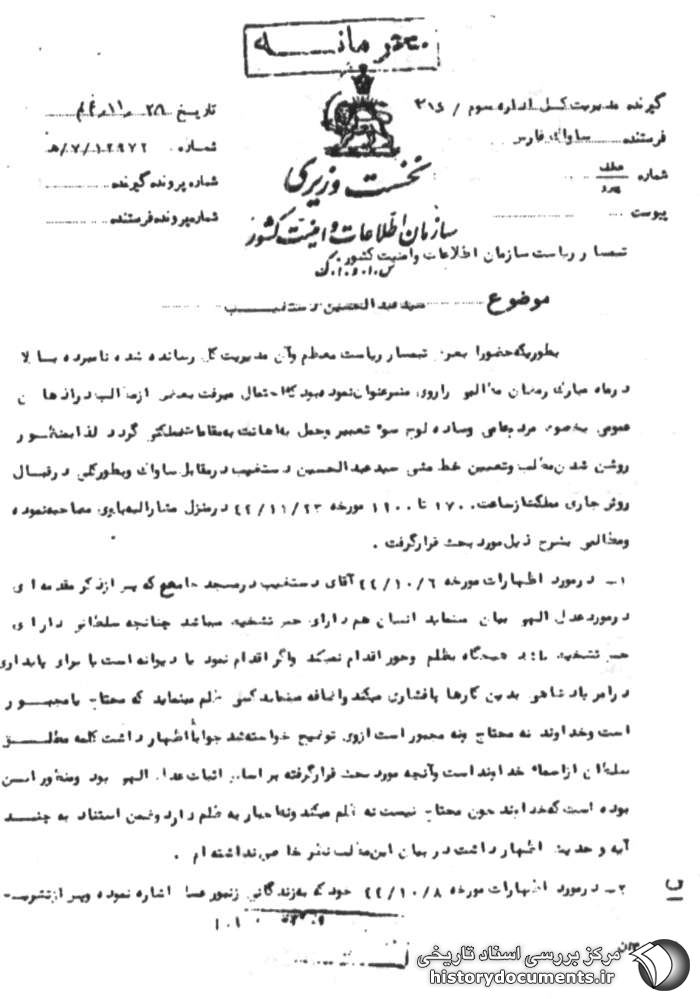 محرمانه
گیرنده مدیریت کل اداره سوم / ۳۱۵
فرستنده ساواک فارس
شماره عطف پیرو
پیوست
نخست وزیری
سازمان اطلاعات و امنیت کشور
س.ا.و.ا.ک
تاریخ ۲۸ر۱۱ر۴۴
شماره ۱۲۹۷۲/۷/ﻫ
شماره پرونده گیرنده
شماره پرونده فرستنده
تیمسار ریاست سازمان اطلاعات وامنیت کشور
موضوع سید عبدالحسین دستغیب
بطوریکه حضورا بعرض تیمسار ریاست معظم وآن مدیریت کل رسانده شد نامبرده بالا
درماه مبارک رمضان مطالبی را روی منبر عنوان نموده بود که احتمال میرفت بعضی ازمطالب دراذهان
عمومی بخصوص مردم عامی وساده لوح سوء تعبیر وحمل به اهانت به مقامات مملکتی گردد لذا بمنظور
روشن شدن مطلب وتعیین خط مشی سید عبدالحسین دستغیب درمقابل ساواک وبطورکلی درقبال
روش جاری مملکت ازساعت ۱۷۰۰ تا ۱۹۰۰ مورخه ۴۴/۱۱/۲۳ درمنزل مشارالیه باوی مصاحبه نموده
ومطالبی بشرح ذیل مورد بحث قرارگرفت .
۱ــ درمورد اظهارات مورخه ۴۴/۱۰/۶ آقای دستغیب درمسجد جامع که پس ازذکر مقدمه ای
درمورد عدل الهی بیان مینماید انسان هم دارای حس تشخیص میباشد چنانچه سلطانی دارای
حس تشخیص باشد هیچگاه بظلم وجور اقدام نمیکند واگر اقدام نمود یا دیوانه است یا برای پایداری
درامر پادشاهی بدین کارها پافشاری میکند واضافه مینماید کسی ظلم مینماید که محتاج یا مجبور
است وخداوند نه محتاج ونه مجبور است ازوی توضیح خواسته شد جوابا اظهار داشت کلمه مطلق
سلطان ازاسماء خداوند است وآنچه مورد بحث قرارگرفته براساس اثبات عدل الهی بود ومنظور این
بوده است که خداوند چون محتاج نیست نه ظلم میکند ونه اجبار به ظلم دارد وضمن استناد به چند
آیه و حدیث اظهار داشت در بیان این مطلب نظر خاصی نداشته ام .
۲ــ درمورد اظهارات مورخه ۴۴/۱۰/۸ خود که به زندگانی زنبور عسل اشاره نموده وپس ازتشریح ــ
۱۰۱
مرکز بررسی اسناد تاریخی
historydocuments.ir